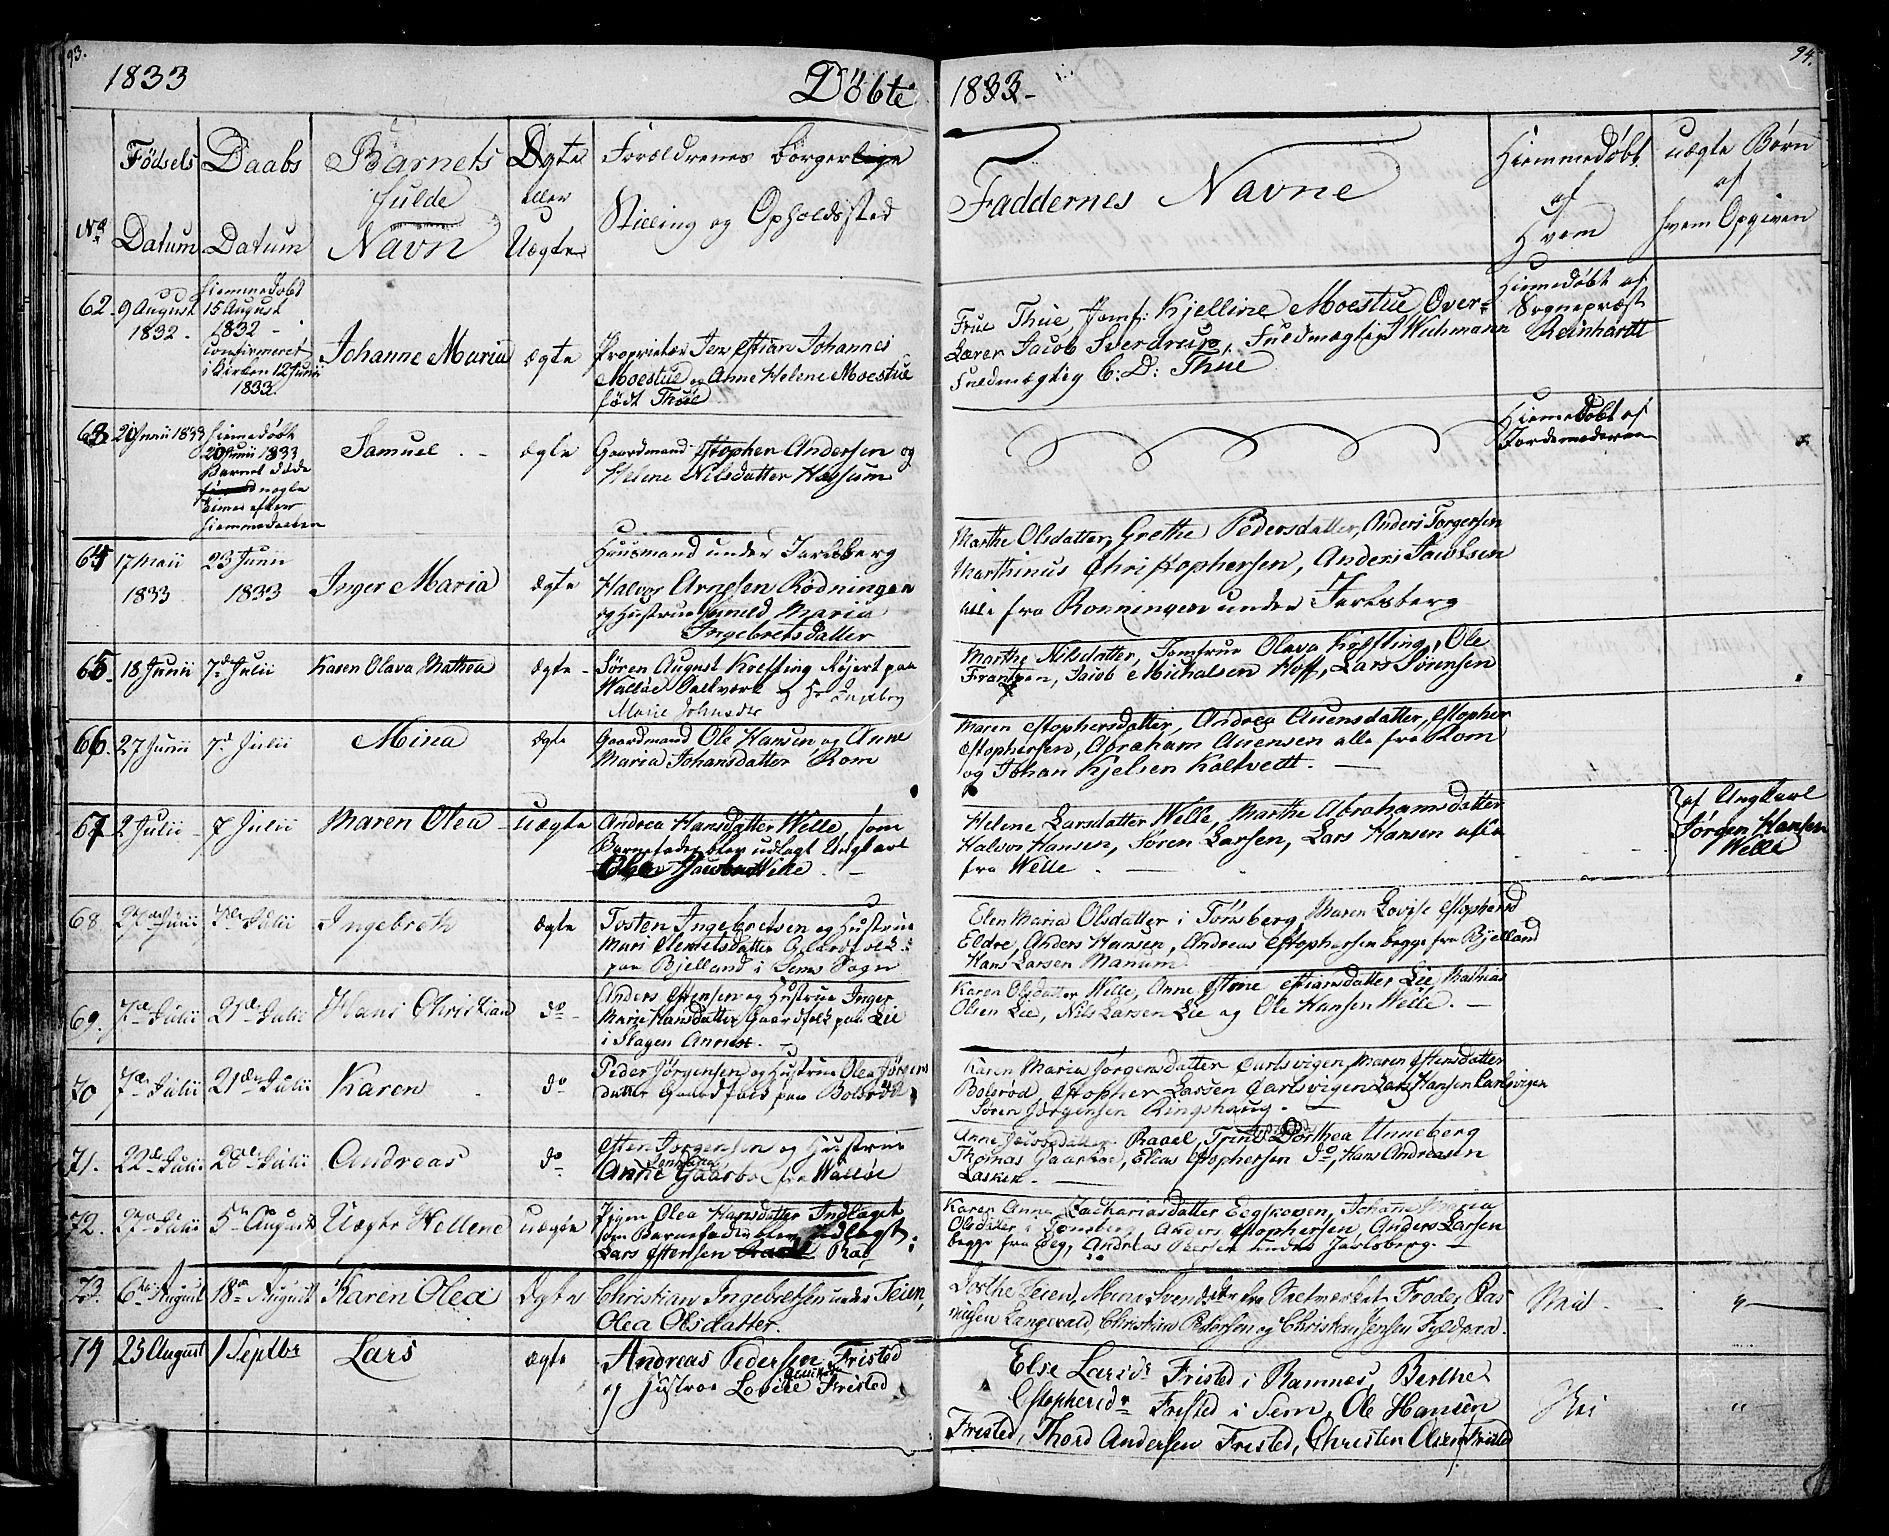 93.
1833
Döbte
No
Födsels
Datum
Daabs
Datum
Barnets
fulde
Navn
Ægte
eller
Uægte
Forældrenes borgerlige
Stilling og Opholdssted
62.
9 August
1832.
Hiemmedöbt
15 August
1832 -
Confirmeret
i Kirken 12 Junii
1833.
Johanne Maria
ægte
Proprietær Jens Christian Johannes
Moestue og Anne Helene Moestue
födt Thue
63
20 Junii 1833
Hiemmedöbt
20 Junii 1833
Barnet döde
nogle
Timer efter
Hiemmedaaben
Samuel
ægte
Gaardmand Christopher Andersen og
Helene Nilsdatter Hassum
64
17 Maii
1833
23 Junii
1833
Inger Maria
ægte
Huusmand under Jarlsberg
Halvor Arnesen Rödningen
og Hustrue Maria
Ingebretsdatter
65
18 Junii
7d Julii
Karen Olava Mathea
ægte
Sören August Krefting Röjert paa
Walløe Saltværk og
Marie
66.
27 Junii
7d Julii
Mina
ægte
Gaardmand Ole Hansen og Anne
Maria Johansdatter Rom
67
2 Julii
7 Julii
Maren Olea
uægte
Andrea Hansdatter Welle, som
Barnefader blev udlagt Ungkarl
Welle
68
Julii
Ingebreth
ægte
Tosten Ingebretsen og Hustrue
Mari Clemetsdatter Gaardfolk
paa Bjelland i Sems Sogn
69.
7de Julii
21de Julii
Hans Christian
do
Anders Christensen og Hustrue Inger
Marie Hansdatter Gaardfolk paa Lie
i Slagen Annex. -
70
7de Julii
21de Julii
Karen
do
Peder Jörgensen og Hustrue Olea Jörgens
datter Gaardfolk paa Bolsröd
71.
22de Julii
28de Julii
Andreas
do
Christen Jörgensen og Hustrue
Anne Gaarboe fra Walløe
72.
27de Julii
5te August
Uægte Hellene
uægte
Pigen Olea Hansdatter
som Barnefader blev udlagt
Lars Christensen Ras
73.
6te August
18de August
Karen Olea
Ægte
Christian Ingebretsen under Teien,
Olea Olsdatter.
74
25 August
1 Septbr
Lars
ægte
Andreas Pedersen Fristed
og Hustroe Lovise Fristed
94.
1833-
Faddernes Navne
Hiemmedöbt
af
Hvem
uægte Börn
af
hvem Opgiven
Frue Thue, Jomf: Kjelline Moestue Over-
Lærer Jacob Sverdrup, Fuldmægtig Wichmann
Fuldmægtig C: D: Thue
Hiemedöbt af
Sognepræst
Reinhardt
Hiemedöbt af
Jordemoderen
Marthe Olsdatter, Grethe Pedersdatter, Anders Torgersen
Marthinus Christophersen, Anders Jacobsen
alle fra Rönningen under Jarlsberg
Marthe Nilsdatter, Jomfrue Olava Krefting, Ole
Frantzen, Jacob Michalsen Hoff, Lars Sörensen
Maren Christophersdatter, Andrea Auensdatter, Christopher
Christophersen, Abraham Auensen alle fra Rom
og Johan Kjelsen Kaltvedt. -
Helene Larsdatter Welle, Marthe Abrahamsdatter
Halvor Hansen, Sören Larsen, Lars Hansen alle
fra Welle
af Ungkarl
Jörgen Hansen
Welle
Elen Maria Olsdatter i Tönsberg, Maren Lovise Christophersd
Eldre, Anders Hansen, Andreas Christophersen begge fra Bjelland
Hans Larsen Manum
Karen Olsdatter Welle, Anne Christiansdatter Lie, Mathias
Olsen Lie, Nils Larsen Lie og Ole Hansen Welle. -
Karen Maria Jörgensdatter Carlsvigen, Maren Christensdatter
Bolsröd, Christopher Larsen Carlsvigen Lars Hansen Carlsvigen
Sören Jörgensen Ringshaug. -
Anne Jacobsdatter Raael, Trine Dorthea Unneberg
Thomas Gaarboe, Elias Christophersen do, Hans Andreasen
Lasken. -
Karen Anna Zachariasdatter Eegskoven, Johanne Maria
Olsdatter i Tönsberg, Anders Christophersen, Anders Larsen
begge fra Eeg, Andreas Persen under Jarlsberg. -
Dorthe Teien, Mina Svendsdtr fra Saltværket, Frode Ras
musen Langevald, Christian Petersen og Christian Jensen
Nei
"
Else Larsdr Fristed i Ramnes, Berthe
Christophersdr Fristed i Sem, Ole Hansen
Fristed, Thord Andersen Fristed, Christen Olsen Fristed
Nei
"